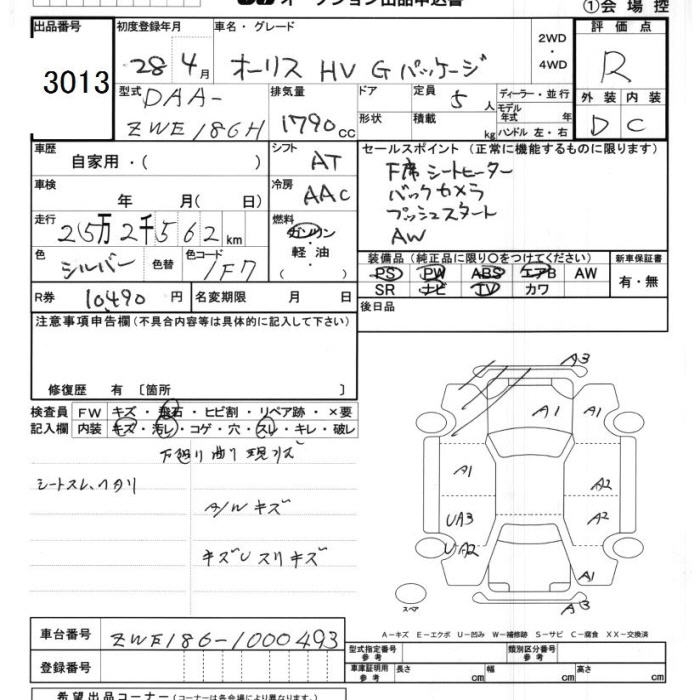 オークション出品申込書
①会場控
出品番号 3013
初度登録年月 28 4月
車名・グレード オーリス HV Gパッケージ
2WD・4WD
評価点 R
外装 D 内装 C
型式 DAA-ZWE186H
排気量 1790cc
ドア 形状
定員 5人
積載 kg
ディーラー・並行
モデル年式 年
ハンドル 左・右
車歴 自家用・( )
シフト AT
車検 年 月( 日)
冷房 AAC
走行 25万2千562km
燃料 ガソリン・軽油・( )
色 シルバー 色替 色コード 1F7
R券 10490円 名変期限 月 日
セールスポイント(正常に機能するものに限ります)
F席シートヒーター
バックカメラ
プッシュスタート
AW
装備品(純正品に限り○をつけてください)
新車保証書
PS PW ABS エアB AW
SR ナビ TV カワ
有・無
後日品
注意事項申告欄(不具合内容等は具体的に記入して下さい)
修復歴 有〔箇所 〕
検査員記入欄
FW キズ・飛石・ヒビ割・リペア跡・×要
内装 キズ・汚レ・コゲ・穴・スレ・キレ・破レ
シートスレ、ヘタリ
A/Wキズ
キズUスリキズ
A3
A1 A1
A1 A2
UA3 A2
UA2 A1
スペア A3
A-キズ E-エクボ U-凹み W-補修跡 S-サビ C-腐食 XX-交換済
車台番号 ZWE186-1000493
登録番号
型式指定番号 参考 類別区分番号 参考
車庫証明用 参考 長さ cm 幅 cm 高さ cm
希望出品コーナー(コーナーは各会場により異なります)